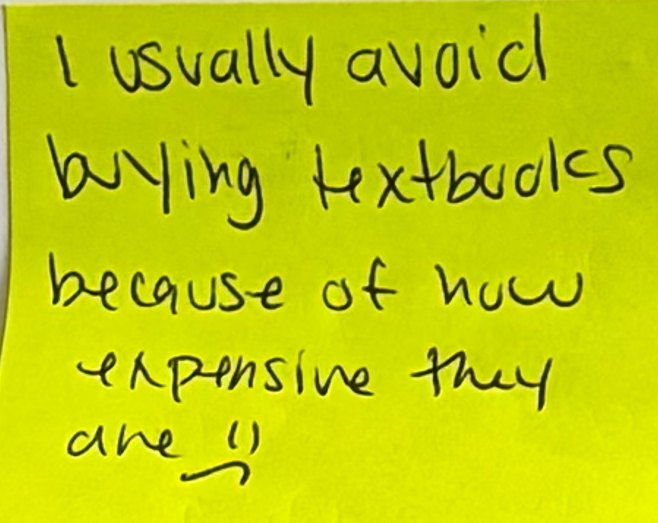 I usually avoid
buying textbooks
because of how
expensive they
are :(